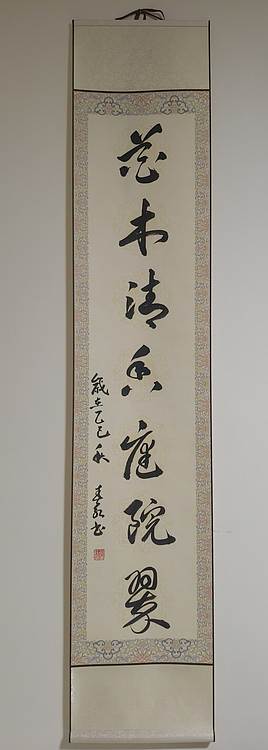 花木清香庭院翠
歲在乙巳秋
書